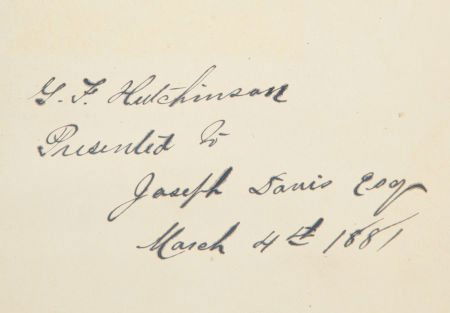 G. F. Hutchinson
Presented to
Joseph Davis Esq
March 4th 1881